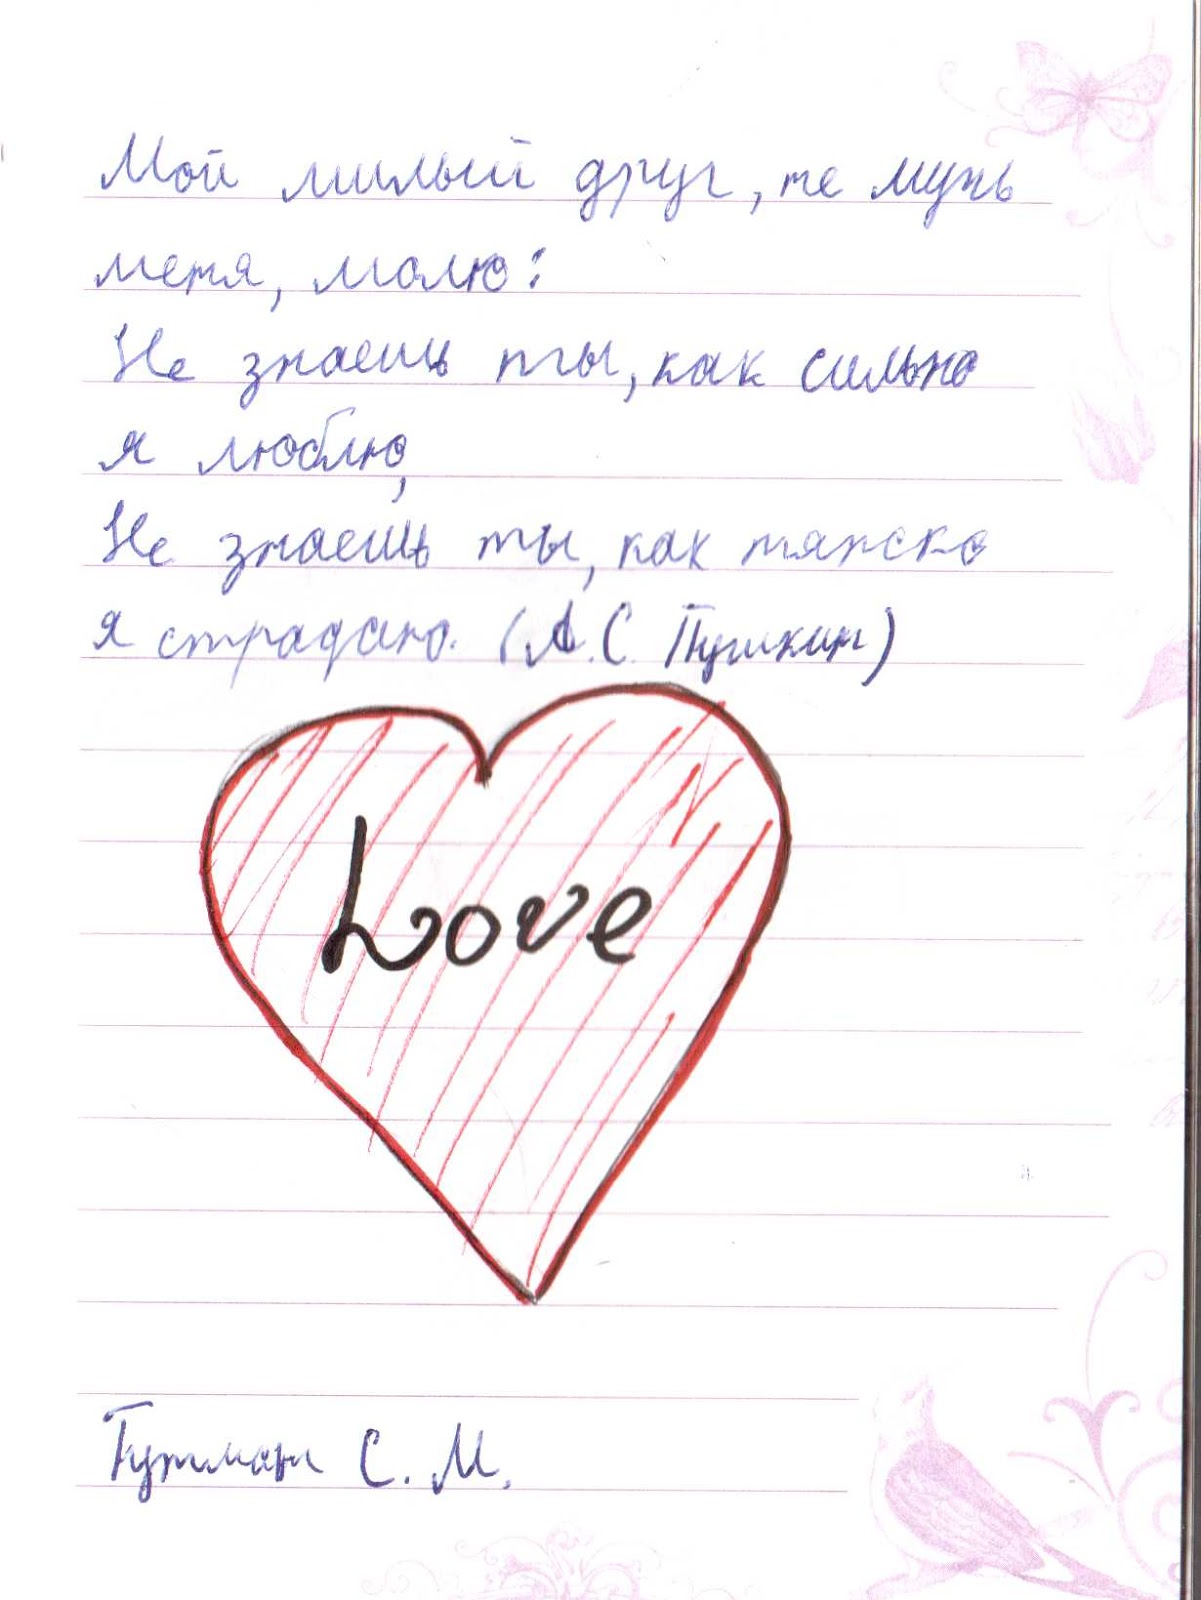 Мой милый друг, не мучь
меня, молю:
Не знаешь ты, как сильно
я люблю,
Не знаешь ты, как тяжко
я страдаю. (А.С. Пушкин)
Love
Гутман С. М.